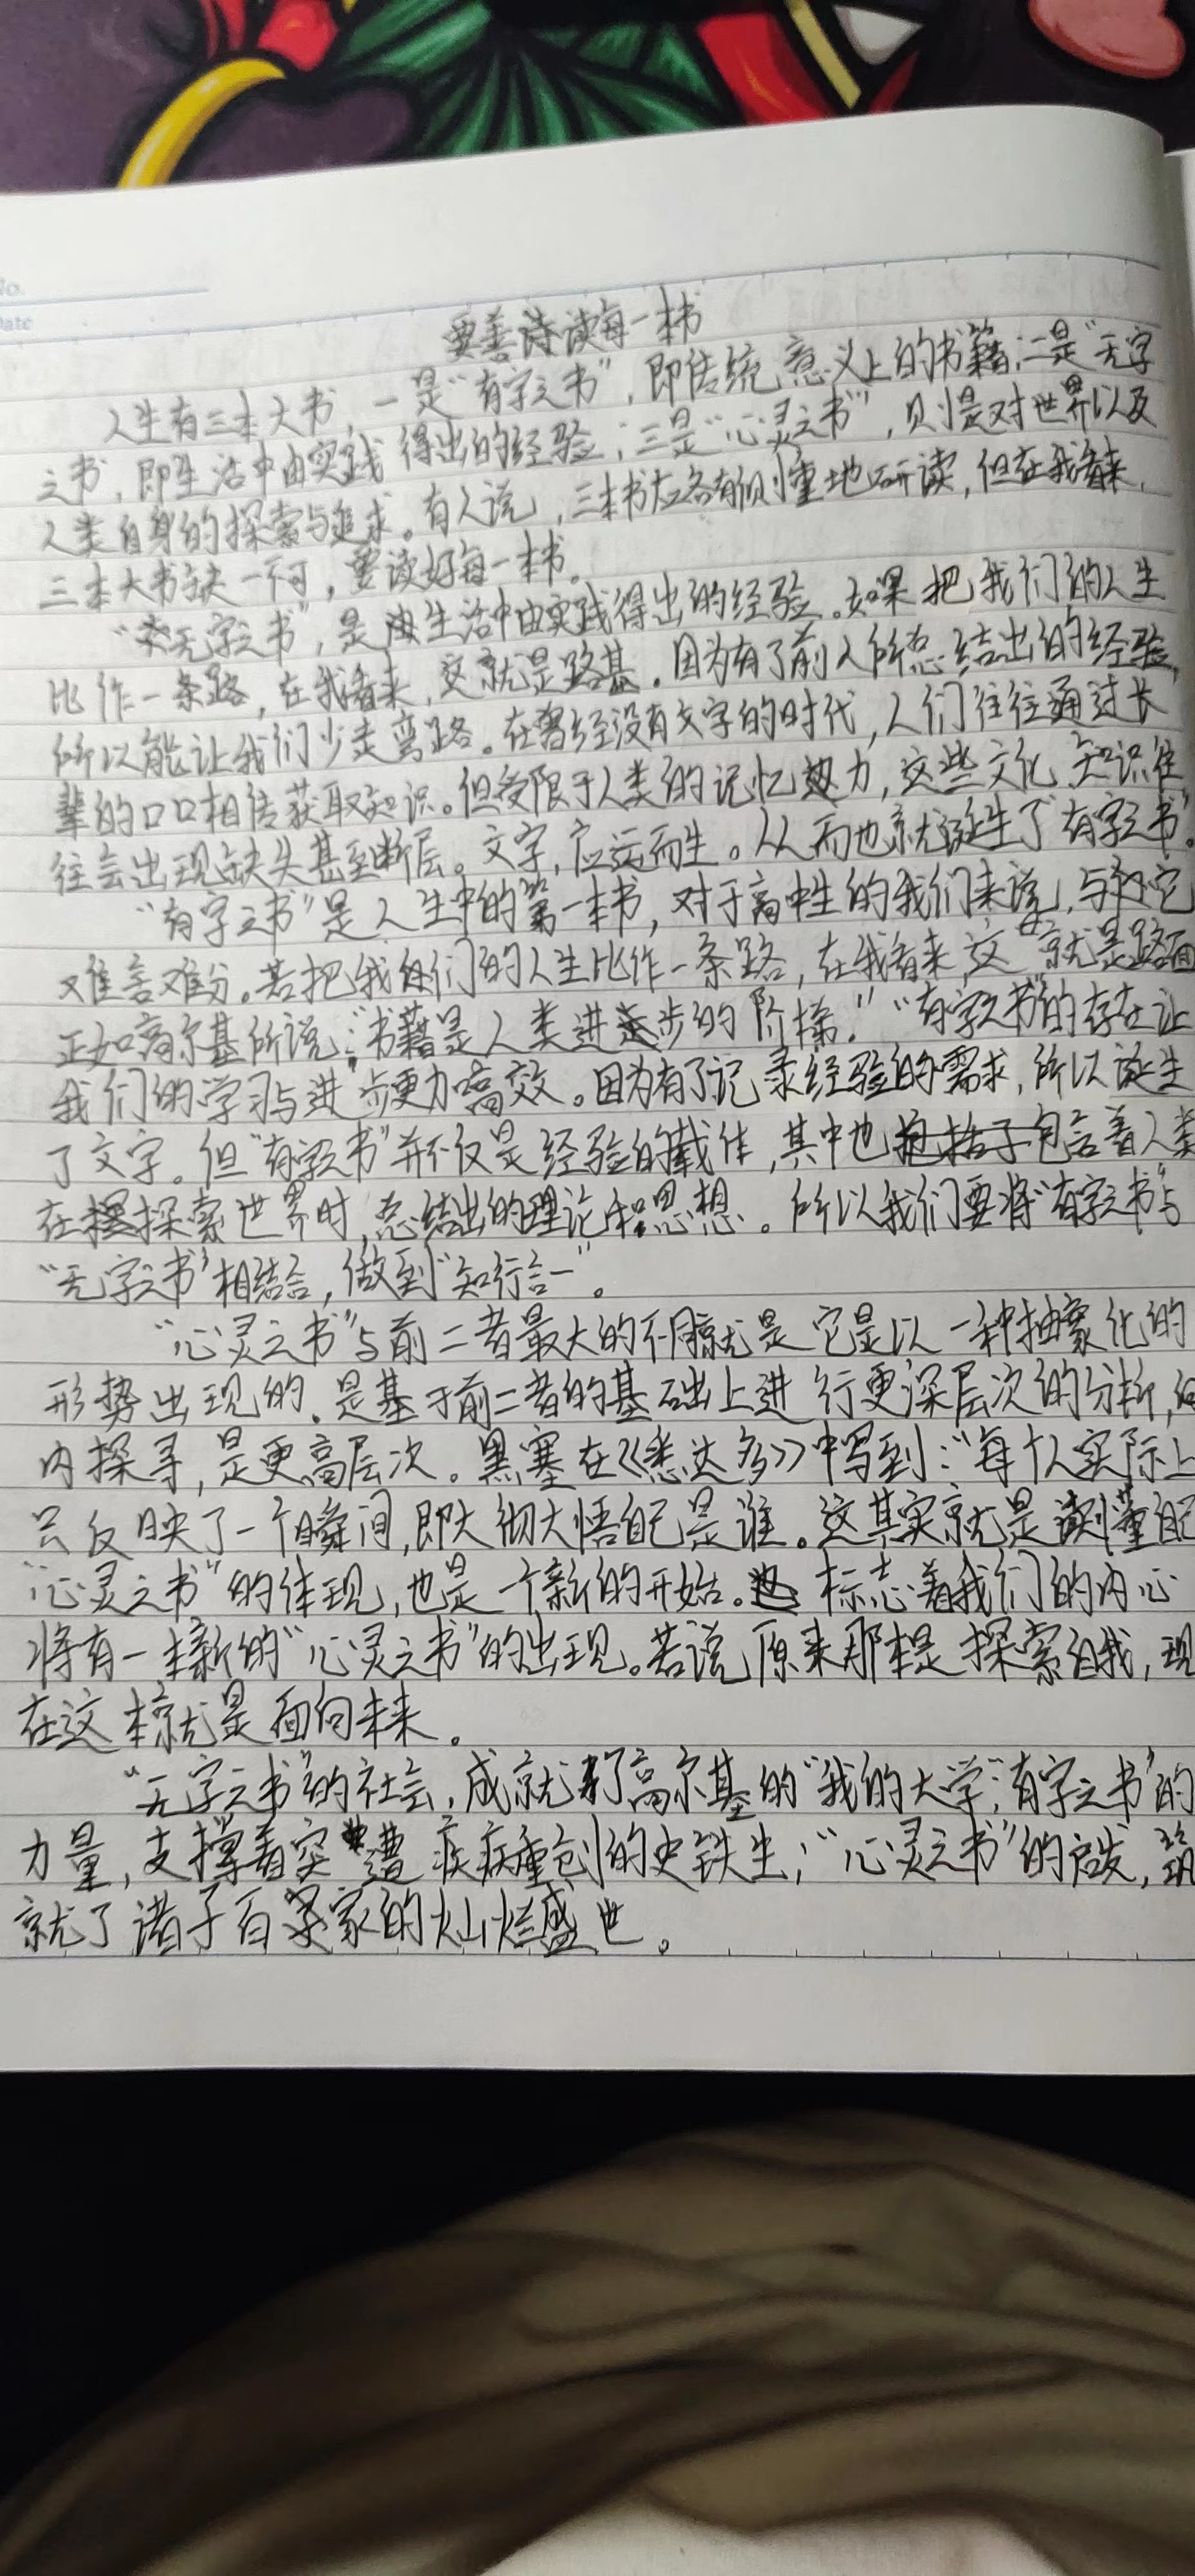 No.
Date
要善待读每一本书
人生有三本大书，一是“有字之书”，即传统意义上的书籍；二是“无字
之书，即生活中由实践得出的经验；三是“心灵之书”，则是对世界以及
人类自身的探索与追求。有人说，三本书应各有侧重地研读，但在我看来，
三本大书缺一不可，要读好每一本书。
“无字之书”，是生活中由实践得出的经验。如果把我们的人生
比作一条路，在我看来，这就是路基。因为有了前人所总结出的经验，
所以能让我们少走弯路。在曾经没有文字的时代，人们往往通过长
辈的口口相传获取知识。但受限于人类的记忆力，这些文化知识往
往会出现缺失甚至断层。文字，应运而生。从而也就诞生了“有字之书”。
“有字之书”是人生中的第一本书，对于高中生的我们来说，与它
难舍难分。若把我们的人生比作一条路，在我看来，这就是路面
正如高尔基所说：“书籍是人类进步的阶梯。”“有字之书”的存在让
我们的学习与进步更为高效。因为有了记录经验的需求，所以诞生
了文字。但“有字之书”并不仅是经验的载体，其中也包含着人类
在探索世界时，总结出的理论和思想。所以我们要将“有字之书”与
“无字之书”相结合，做到“知行合一”。
“心灵之书”与前二者最大的不同就是它是以一种抽象化的
形势出现的。是基于前二者的基础上进行更深层次的分析，向
内探寻，是更高层次。黑塞在《悉达多》中写到：“每个人实际上
只反映了一个瞬间，即大彻大悟自己是谁。这其实就是读懂自己
“心灵之书”的体现，也是一个新的开始。标志着我们的内心
将有一本新的“心灵之书”的出现。若说原来那本是探索自我，现
在这本就是面向未来。
“无字之书”的社会，成就了高尔基的“我的大学”；“有字之书”的
力量，支撑着突遭疾病重创的史铁生；“心灵之书”的启发，筑
就了诸子百家的灿烂盛世。